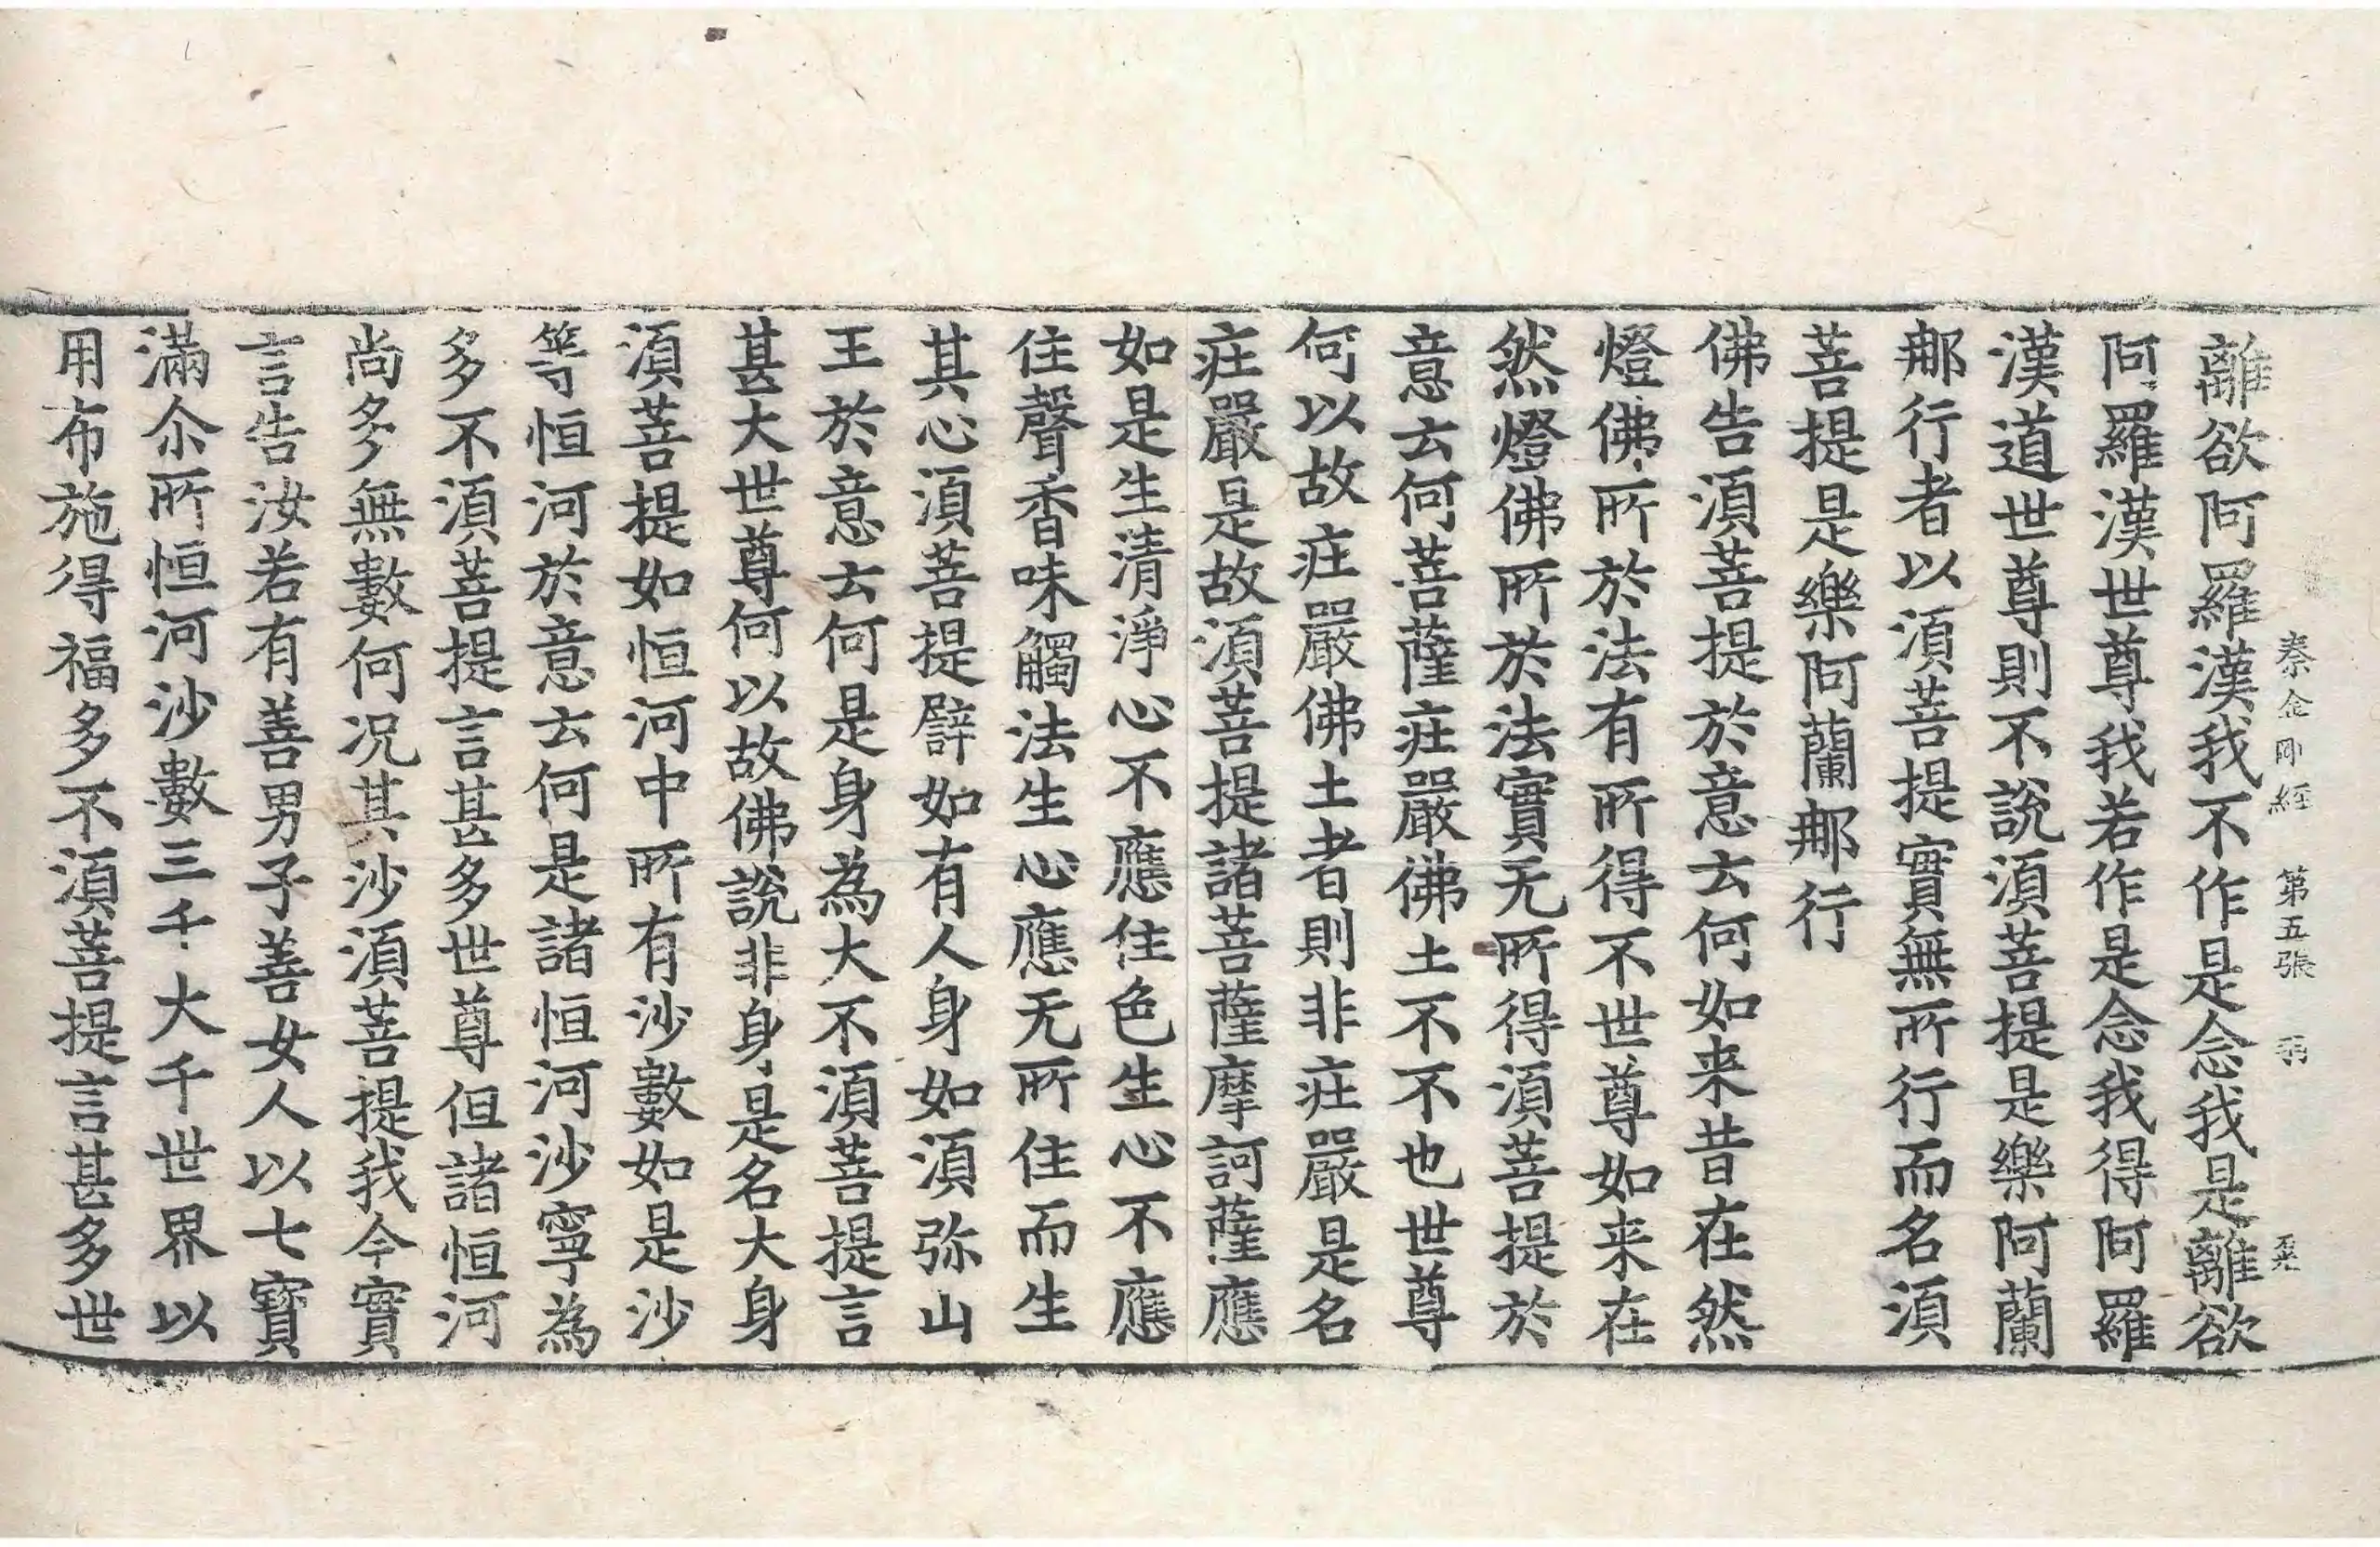 秦金剛經 第五張 羽
離欲阿羅漢我不作是念我是離欲
阿羅漢世尊我若作是念我得阿羅
漢道世尊則不說須菩提是樂阿蘭
那行者以須菩提實無所行而名須
菩提是樂阿蘭那行
佛告須菩提於意云何如来昔在然
燈佛所於法有所得不世尊如来在
然燈佛所於法實无所得須菩提於
意云何菩薩庄嚴佛土不不也世尊
何以故庄嚴佛土者則非庄嚴是名
庄嚴是故須菩提諸菩薩摩訶薩應
如是生清淨心不應住色生心不應
住聲香味觸法生心應无所住而生
其心須菩提辟如有人身如須弥山
王於意云何是身為大不須菩提言
甚大世尊何以故佛說非身是名大身
須菩提如恒河中所有沙數如是沙
等恒河於意云何是諸恒河沙寧為
多不須菩提言甚多世尊但諸恒河
尚多無數何况其沙須菩提我今實
言告汝若有善男子善女人以七寶
滿尒所恒河沙數三千大千世界以
用布施得福多不須菩提言甚多世